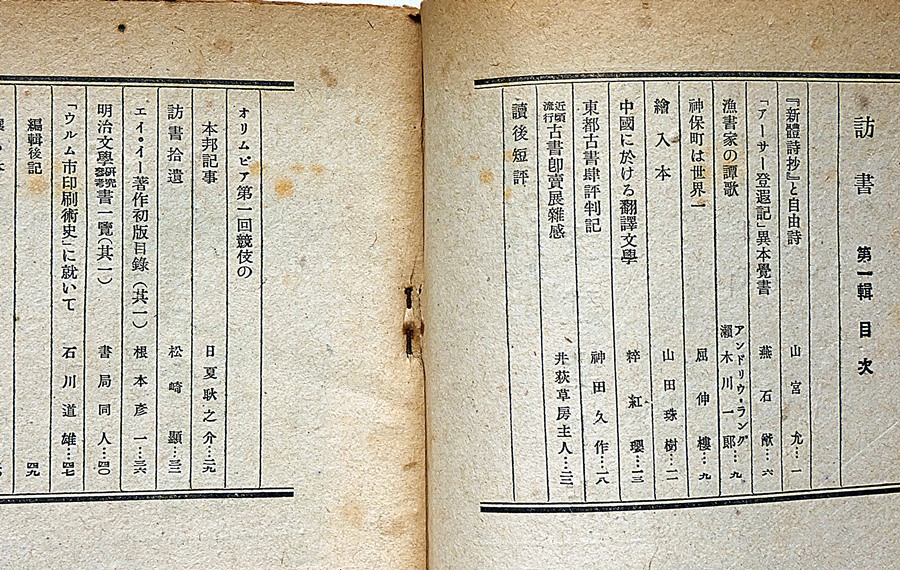 訪書 第一輯 目次
『新體詩抄』と自由詩 山宮允…一
「アーサー登遐記」異本覺書 燕石猷…六
漁書家の譚歌 アンドリウ・ラング 瀨木川一郞…九
神保町は世界一 屈伸樓…九
繪入本 山田珠樹…一一
中國に於ける翻譯文學 粹紅瓔…一三
東都古書肆評判記 神田久作…一八
近頃流行古書卽賣展雜感 井荻草房主人…二三
讀後短評
オリムピア第一回競伎の
本邦記事 日夏耿之介…二九
訪書拾遺 松崎顯…三三
エイ・イー著作初版目錄(其一) 根本彥一…三六
明治文學硏究參考書一覽(其一) 書局同人…四〇
「ウルム市印刷術史」に就いて 石川道雄…四七
編輯後記 四九